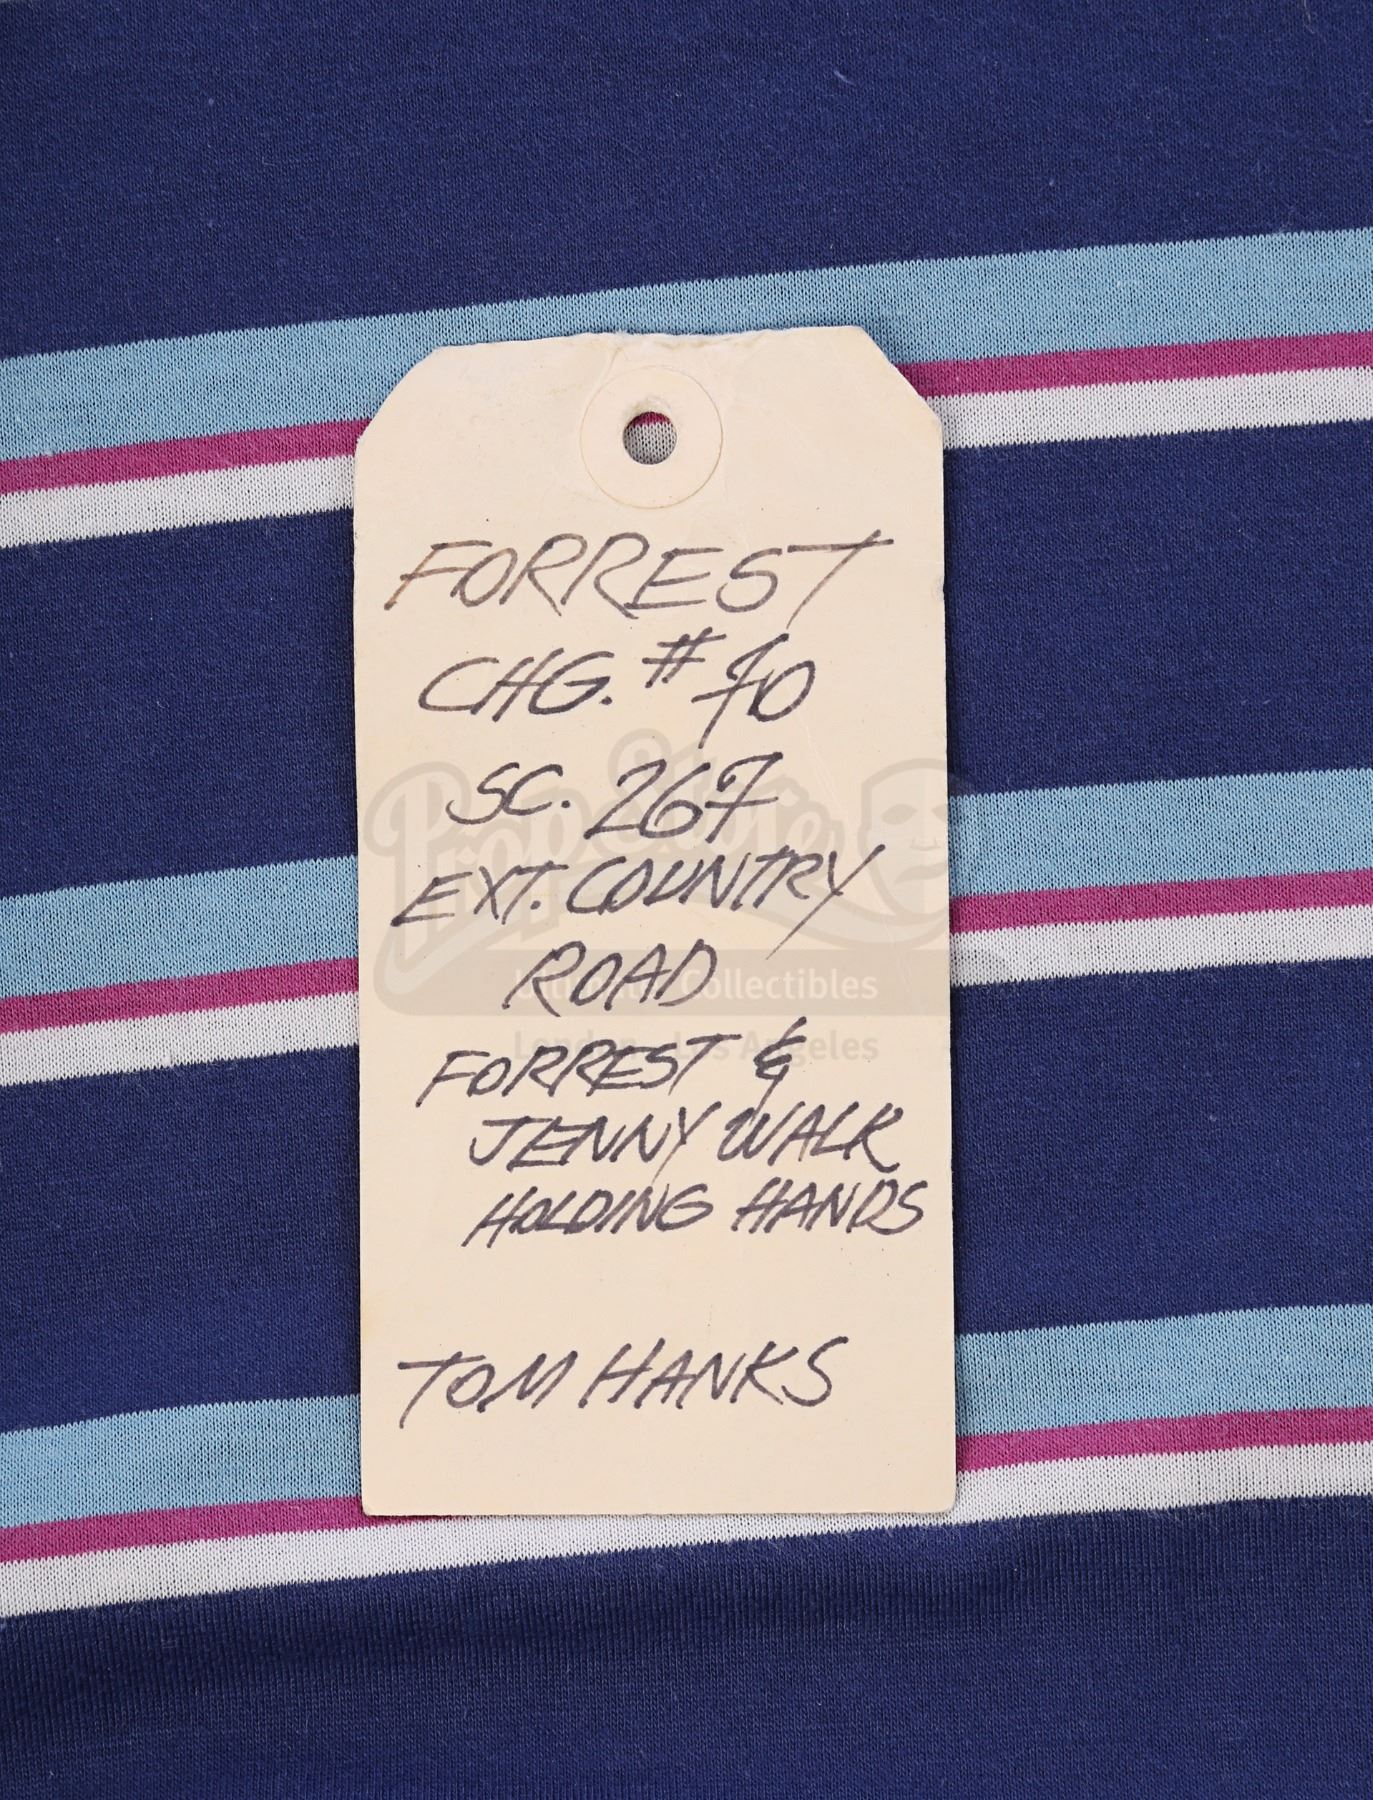 FORREST
CHG. #70
SC. 267
EXT. COUNTRY
ROAD
FORREST &
JENNY WALK
HOLDING HANDS
TOM HANKS
Prop Store
Ultimate Collectibles
London - Los Angeles